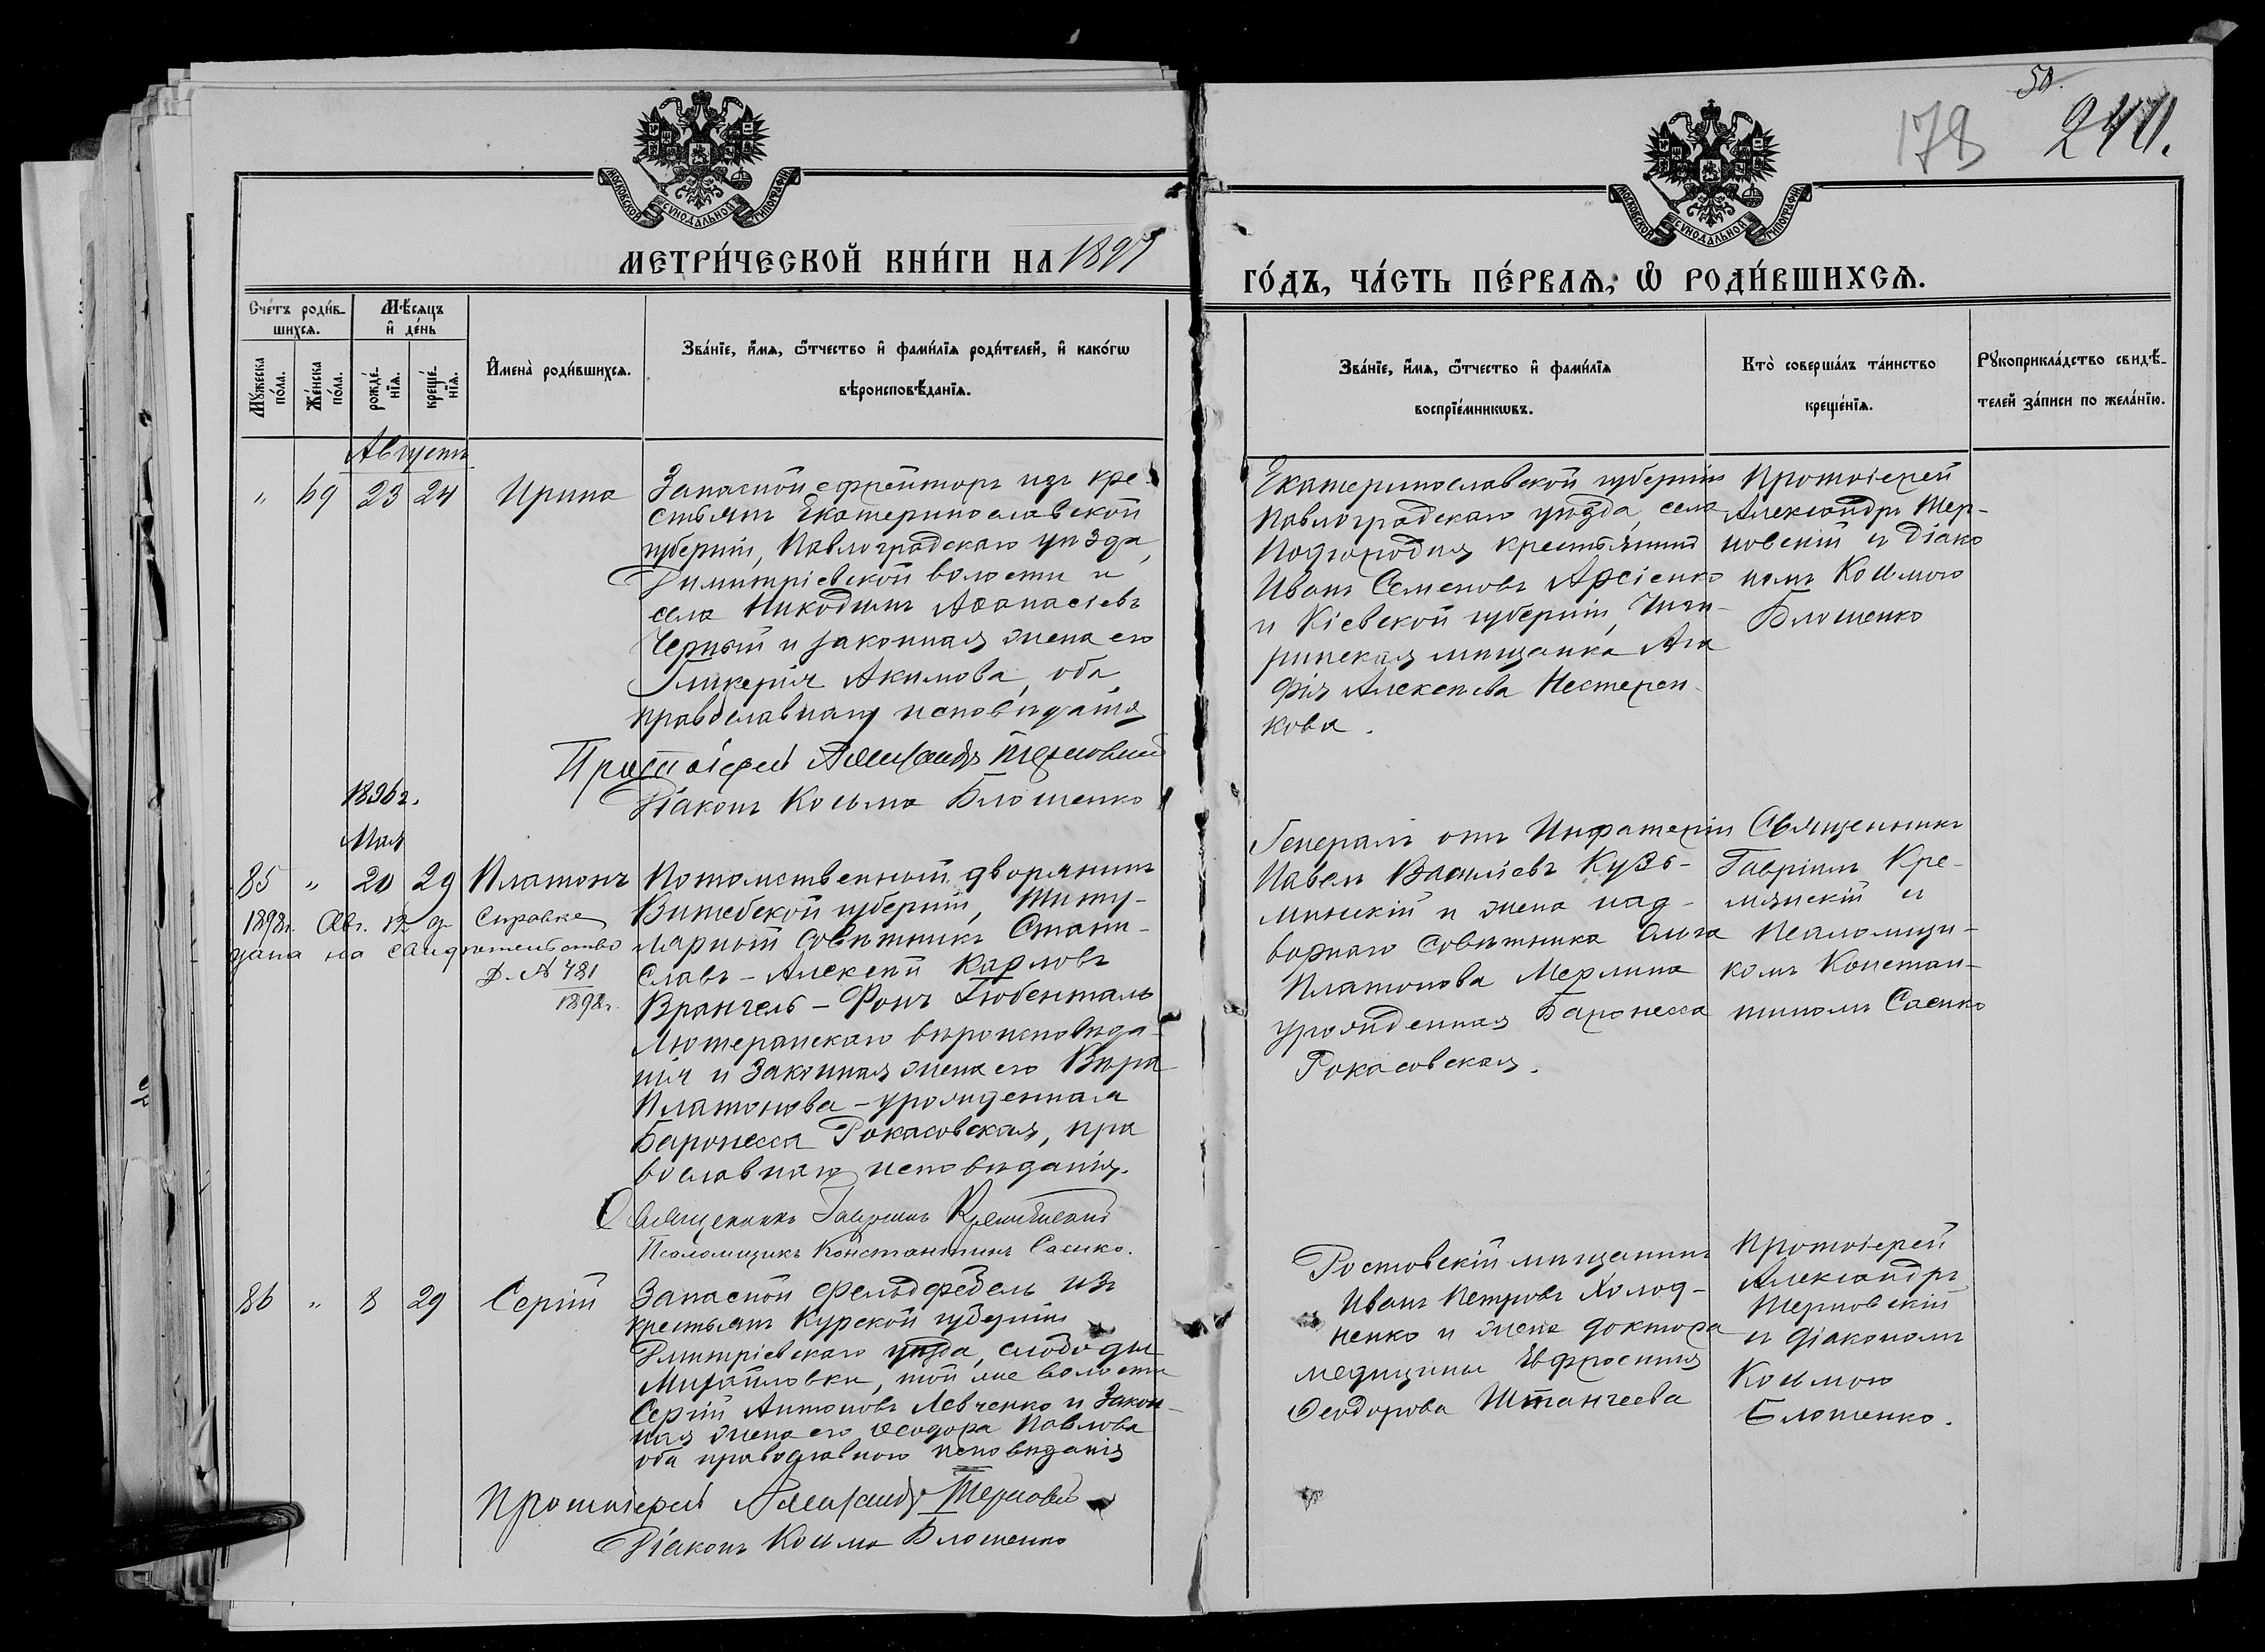 50.
178
241.
МОСКОВСКОЙ СѴНОДАЛЬНОЙ ТИПОГРАФІИ
МОСКОВСКОЙ СѴНОДАЛЬНОЙ ТИПОГРАФІИ
МЕТРИ́ЧЕСКОЙ КНИ́ГИ НА 1897
ГО́ДЪ, ЧА́СТЬ ПЕ́РВАѦ, Ѽ РОДИ́ВШИХСѦ.
Сче́тъ роди́в-
шихсѧ.
Мѣ́сѧцъ
и҆ де́нь
Мꙋ́жеска
по́ла.
Же́нска
по́ла.
рожде́-
нїѧ.
креще́-
нїѧ.
И҆мена̀ роди́вшихсѧ.
Зва́нїе, и҆́мѧ, ѻ҆́тчество и҆ фами́лїѧ роди́телей, и҆ како́гѡ
вѣроисповѣ́данїѧ.
Зва́нїе, и҆́мѧ, ѻ҆́тчество и҆ фами́лїѧ
воспрїе́мникѡвъ.
Кто̀ соверша́лъ та́инство
креще́нїѧ.
Рꙋкоприкла́дство свидѣ́-
телей за́писи по жела́нїю.
Августъ
" 69 23 24 Ирина
Запасной ефрейторъ изъ кре-
стьянъ Екатеринославской
губерніи, Павлоградскаго уѣзда,
Димитріевской волости и
села Никодимъ Аѳанасіевъ
Черный и законная жена его
Гликерія Акимова, оба
православнаго исповѣданія
Протоіерей Александръ Терновскій
Діаконъ Косьма Блошенко
Екатеринославской губерніи
Павлоградскаго уѣзда, села
Подгородня крестьянинъ
Иванъ Семеновъ Арсіенко
и Кіевской губерніи, Чиги-
ринская мѣщанка Ага
фія Алексѣева Нестерен-
кова.
Протоіерей
Александръ Тер-
новскій и діако
номъ Косьмою
Блошенко
1896 г.
Мая
85 " 20 29 Платонъ
1898 г. Авг. 12 д. Справка
дана на свидѣтельство
Д. № 481
1898 г.
Потомственный дворянинъ
Витебской губерніи, Титу-
лярный Совѣтникъ Стани-
славъ - Алексѣй Карловъ
Врангель - Фонъ Гюбенталь
Лютеранскаго вѣроисповѣда-
нія и Законная жена его Вѣра
Платонова - урожденная
Баронесса Рокасовская, пра
вославнаго исповѣданія.
Священникъ Гавріилъ Кремянскій
Псаломщикъ Константинъ Саенко.
Генералъ отъ Инфатеріи
Павелъ Васильевъ Кузь-
минскій и жена над-
ворнаго Совѣтника Ольга
Платонова Мерлина
урожденная Баронесса
Рокасовская.
Священникъ
Гавріилъ Кре-
мянскій и
Псаломщи-
комъ Констан-
тиномъ Саенко
86 " 8 29 Сергій
Запасной фельдфебель изъ
крестьянъ Курской губерніи
Димитріевскаго уѣзда, слободы
Михайловки, той же волости
Сергій Антоновъ Левченко и Закон-
ная жена его Ѳеодора Павлова
оба православнаго исповѣданія
Протоіерей Александръ Терновскій
Діаконъ Косьма Блошенко
Ростовскій мѣщанинъ
Иванъ Петровъ Холод-
ненко и жена доктора
медицины Евфросинія
Ѳеодорова Штанчеева
Протоіерей
Александръ
Терновскій
и діакономъ
Косьмою
Блошенко.